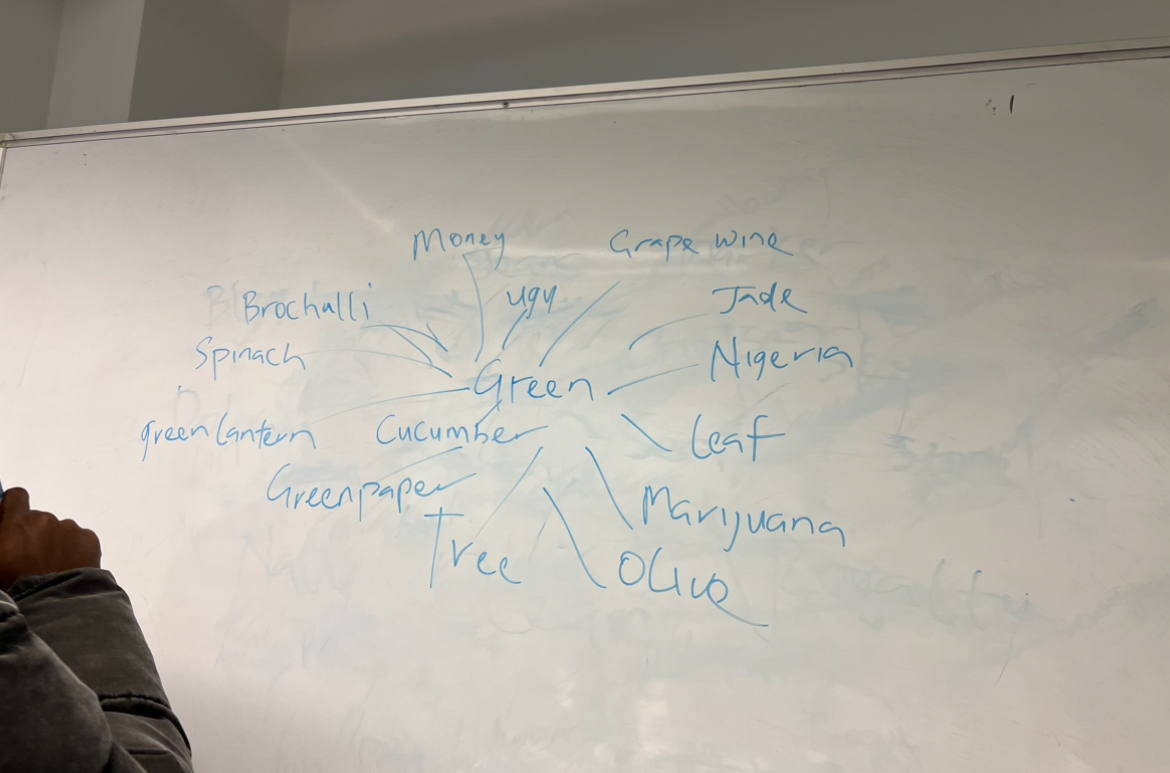 Money
Grape wine
Brochalli
ugy
Jade
Spinach
Nigeria
Green
green lantern
Cucumber
Leaf
Greenpaper
Marijuana
Tree
Olive